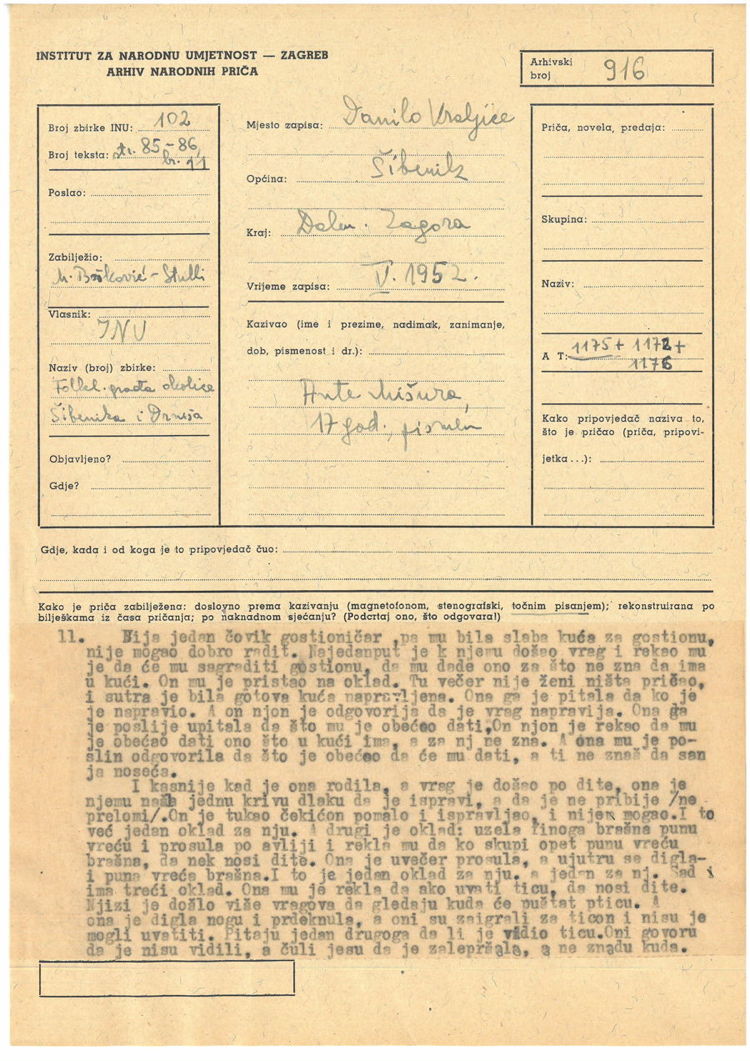 INSTITUT ZA NARODNU UMJETNOST — ZAGREB
ARHIV NARODNIH PRIČA
Arhivski
broj 916
Broj zbirke INU: 102
Broj teksta: str. 85-86,
br. 11
Poslao:
Zabilježio:
M. Bošković-Stulli
Vlasnik:
INU
Naziv (broj) zbirke:
Folkl. građa okolice
Šibenika i Drniša
Objavljeno?
Gdje?
Mjesto zapisa: Danilo Kraljice
Općina: Šibenik
Kraj: Dalm. Zagora
Vrijeme zapisa: V. 1952.
Kazivao (ime i prezime, nadimak, zanimanje,
dob, pismenost i dr.):
Ante Mišura,
17 god., pismen
Priča, novela, predaja:
Skupina:
Naziv:
A T: 1175 + 1172 +
1176
Kako pripovjedač naziva to,
što je pričao (priča, pripovi-
jetka...):
Gdje, kada i od koga je to pripovjedač čuo:
Kako je priča zabilježena: doslovno prema kazivanju (magnetofonom, stenografski, točnim pisanjem); rekonstruirana po
bilješkama iz časa pričanja; po naknadnom sjećanju? (Podcrtaj ono, što odgovara!)
11. Bija jedan čovik gostioničar ,pa mu bila slaba kuća za gostionu,
nije mogao dobro radit. Najedanput je k njemu došao vrag i rekao mu
je da će mu sagraditi gostionu, da mu dade ono za što ne zna da ima
u kući. On mu je pristao na oklad. Tu večer nije ženi ništa pričao,
i sutra je bila gotova kuća napravljena. Ona ga je pitala da ko je
je napravio. A on njon je odgovorija da je vrag napravija. Ona ga
je poslije upitala da što mu je obećao dati,On njon je rekao da mu
je obećao dati ono što u kući ima, a za nj ne zna. A ona mu je po-
slin odgovorila da što je obećao da će mu dati, a ti ne znaš da san
ja noseća.
I kasnije kad je ona rodila, a vrag je došao po dite, ona je
njemu našla jednu krivu dlaku da je ispravi, a da je ne pribije /ne
prelomi/.On je tukao čekićon pomalo i ispravljao, i nijem mogao.I to
već jedan oklad za nju. A drugi je oklad: uzela finoga brašna punu
vreću i prosula po avliji i rekla mu da ko skupi opet punu vreću
brašna, da nek nosi dite. Ona je uvečer prosula, a ujutru se digla-
i puna vreća brašna.I to je jedan oklad za nju. a jedan za nj. Sad i
ima treći oklad. Ona mu je rekla da ako uvati ticu, da nosi dite.
Njizi je došlo više vragova da gledaju kuda će puštat pticu. A
ona je digla nogu i prdeknula, a oni su zaigrali za ticon i nisu je
mogli uvatiti. Pitaju jedan drugoga da li je vidio ticu.Oni govoru
da je nisu vidili, a čuli jesu da je zalepršala, a ne znadu kuda.